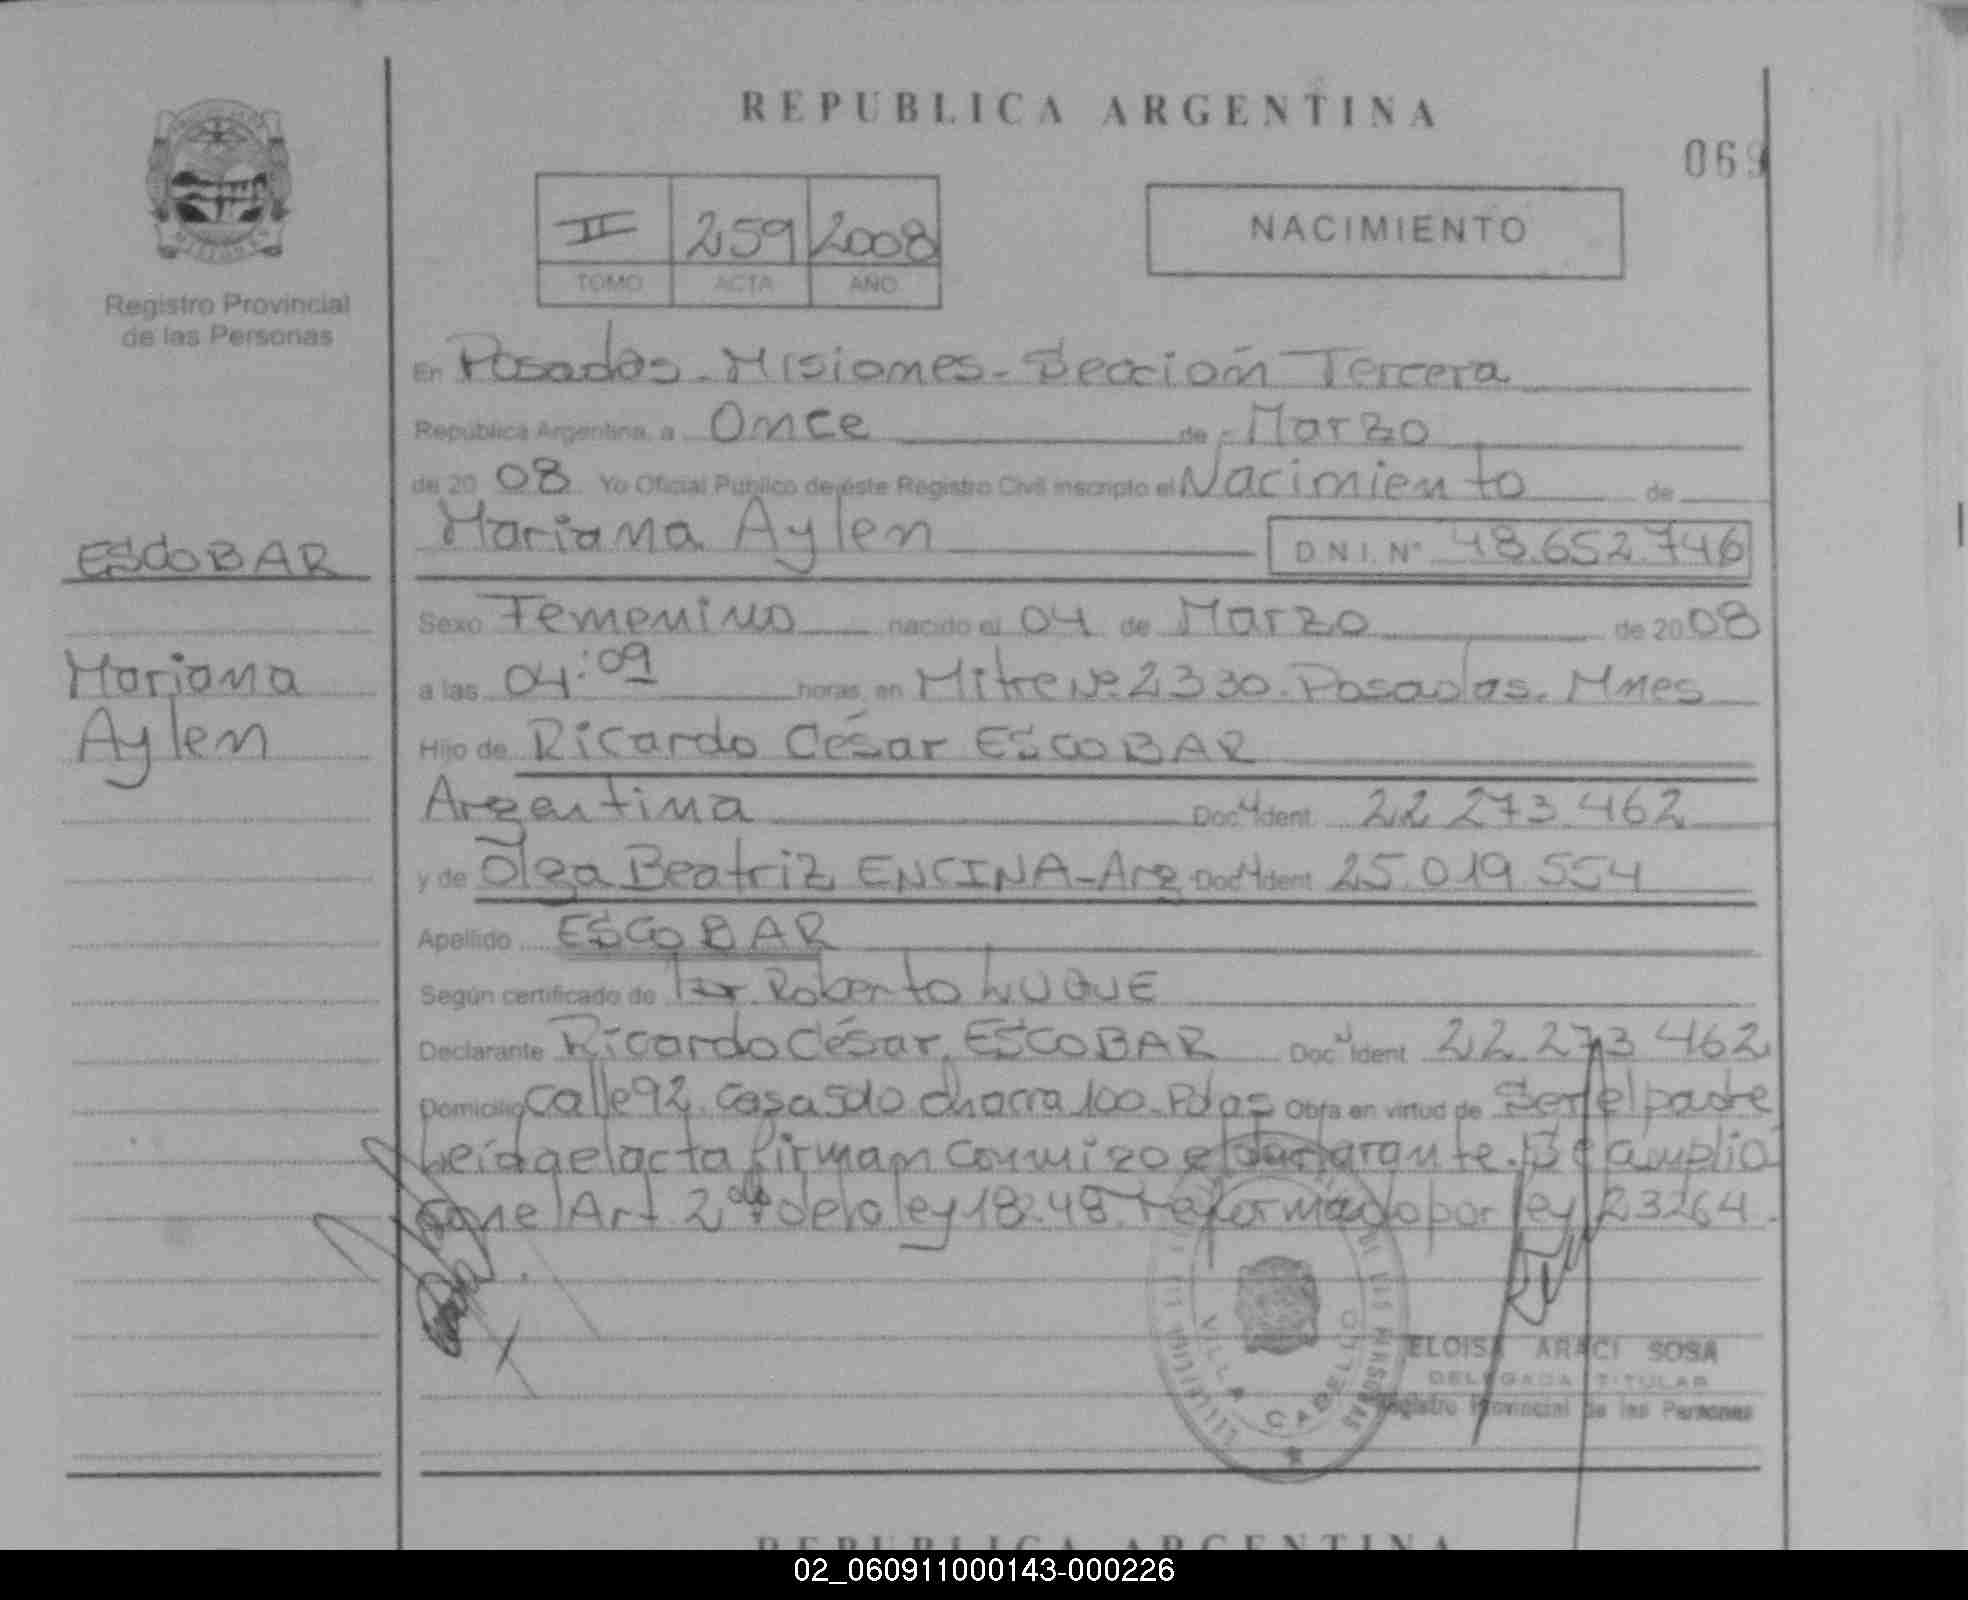 REPUBLICA ARGENTINA
069
II 259 2008
TOMO ACTA AÑO
NACIMIENTO
Registro Provincial
de las Personas
En Posadas - Misiones - Sección Tercera
República Argentina, a Once de Marzo
de 20 08 Yo Oficial Público de este Registro Civil inscripto el Nacimiento de
Mariana Aylen D.N.I. Nº 48.652.746
ESCOBAR
Mariana
Aylen
Sexo Femenino nacido el 04 de Marzo de 20 08
a las 04:09 horas, en Mitre Nº 2330. Posadas. Mnes
Hijo de Ricardo César ESCOBAR
Argentina Doc. Ident. 22 273 462
y de Olga Beatriz ENCINA - Arg. Doc. Ident. 25.019.554
Apellido ESCOBAR
Según certificado de Roberto LUQUE
Declarante Ricardo César ESCOBAR Doc. Ident. 22.273 462
Domicilio Calle 92 Casa 5010 Chacra 100. Pdas Obra en virtud de Ser el padre
Leída el acta firman conmigo el declarante. Se amplió
con el Art 2do de la ley 18248 reformado por ley 23264.
VILLA CABELLO
ELOISA ARACI SOSA
DELEGADA TITULAR
Registro Provincial de las Personas
REPUBLICA ARGENTINA
02_060911000143-000226